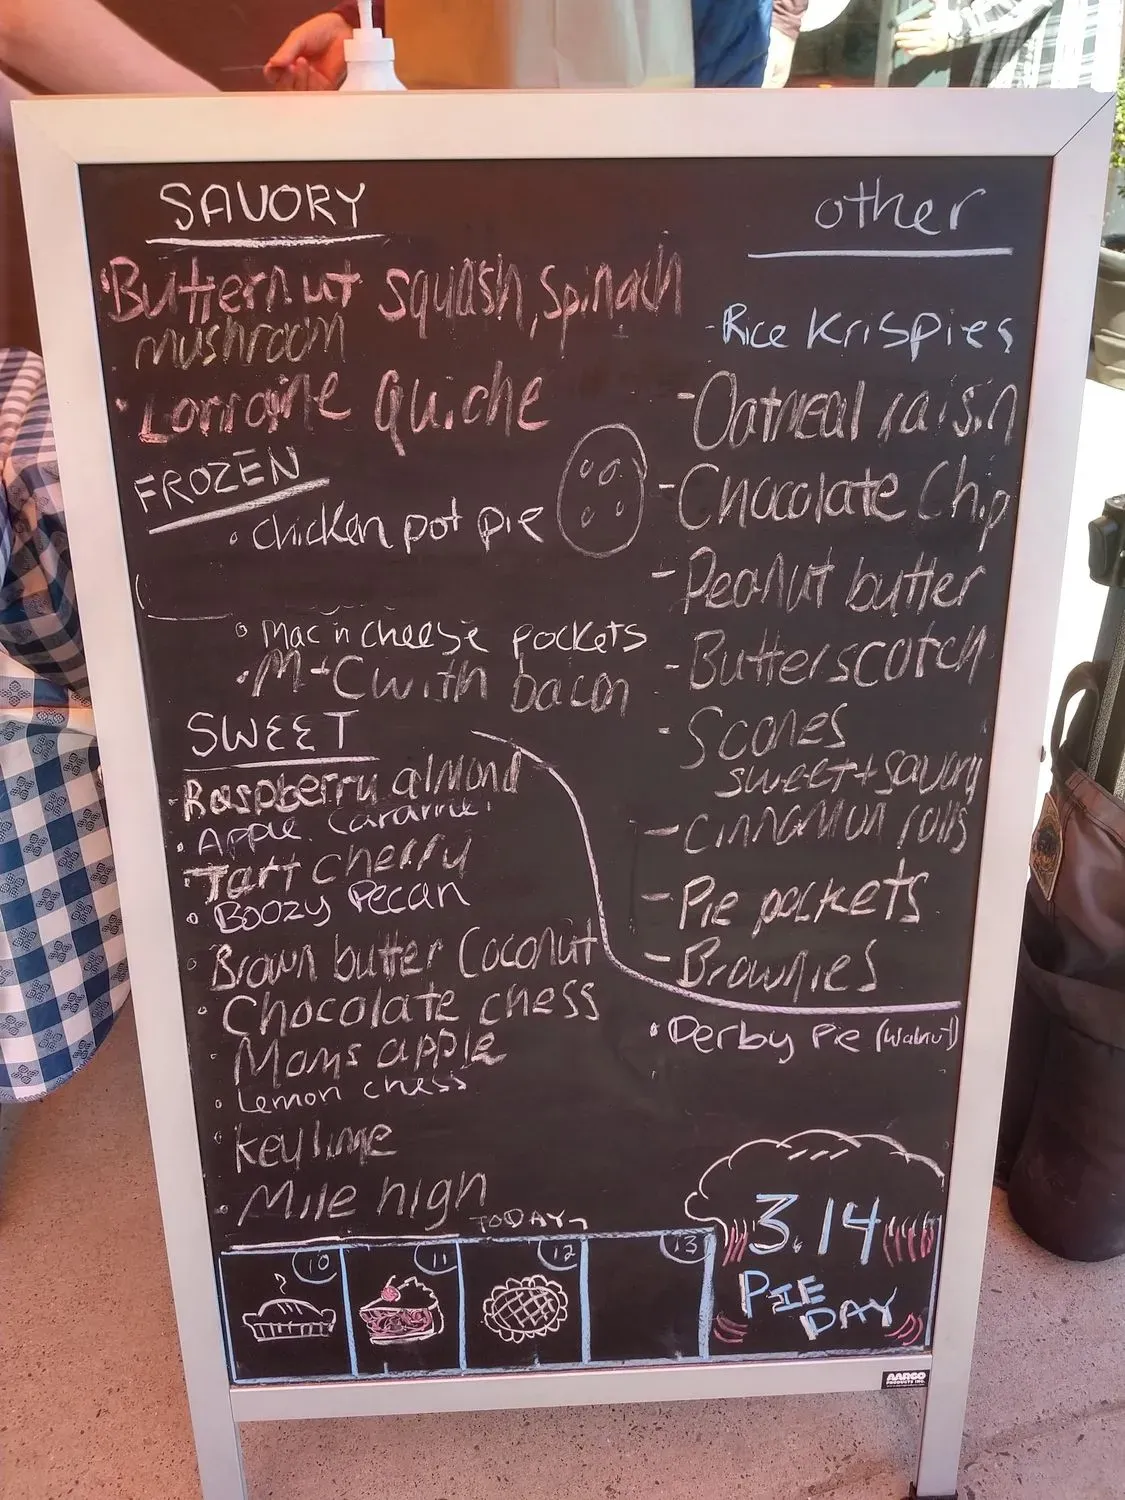 SAVORY
Butternut squash, spinach
mushroom
Lorraine Quiche
FROZEN
chicken pot pie
mac n cheese pockets
M+C with bacon
SWEET
Raspberry almond
Apple Caramel
Tart cherry
Boozy Pecan
Brown butter Coconut
Chocolate chess
Moms apple
Lemon chess
Key lime
Mile high
other
-Rice Krispies
-Oatmeal raisin
-Chocolate Chip
-Peanut butter
-Butterscotch
-Scones
sweet + savory
-Cinnamon rolls
-Pie pockets
-Brownies
Derby Pie (walnut)
TODAY
10 11 12 13
3.14
PIE
DAY
AARCO
PRODUCTS INC.